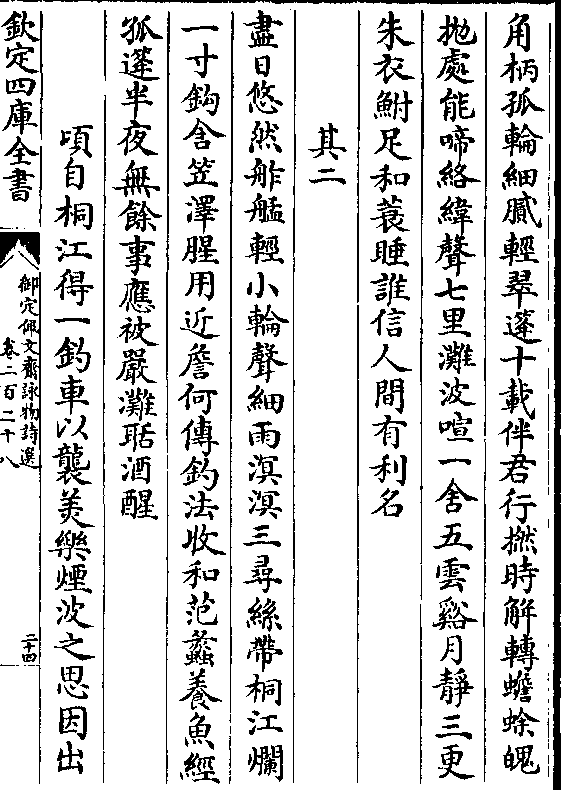 角柄孤輪細膩輕翠篷十載伴君行撚時解轉蟾蜍魄
抛處能啼絡緯聲七里灘波喧一舍五雲谿月靜三更
朱衣鮒足和蓑睡誰信人間有利名
其二
盡日悠然舴艋輕小輪聲細雨溟溟三尋絲帶桐江爛
一寸鈎含笠澤腥用近詹何傳釣法收和范蠡養魚經
孤篷半夜無餘事應被嚴灘聒酒醒
頃自桐江得一釣車以襲美樂煙波之思因出
欽定四庫全書
御定佩文齋詠物詩選
卷二百二十八
二十四